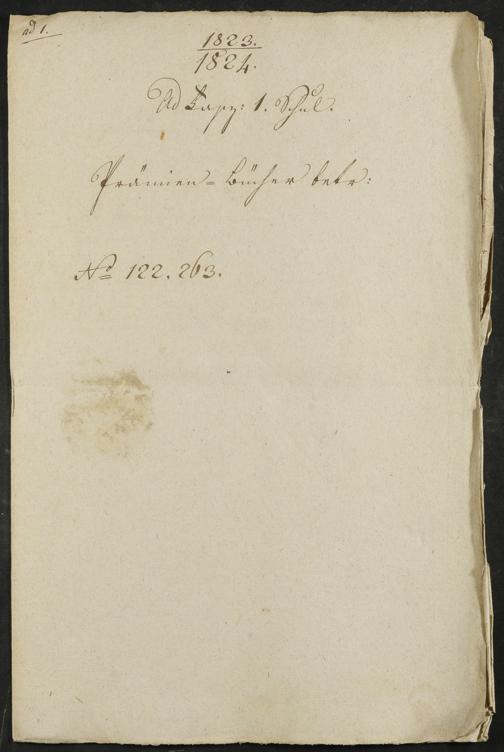 ad 1.
1823.
1824.
Ad Kapp: 1. Schul.
Prämien-Bücher betr:
No 122. 263.